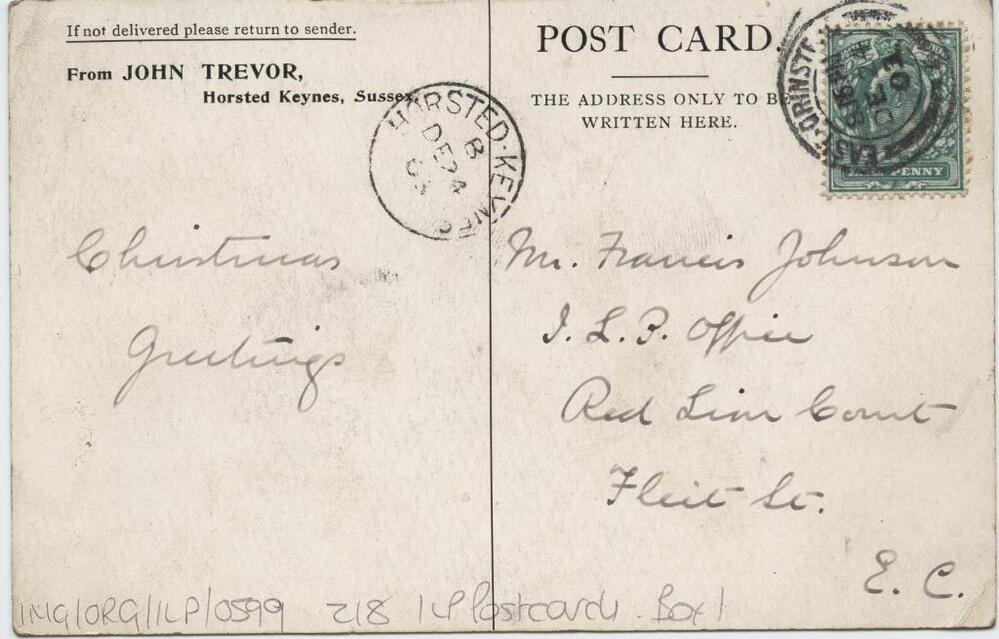 If not delivered please return to sender.
From JOHN TREVOR,
Horsted Keynes, Sussex.
POST CARD
THE ADDRESS ONLY TO BE
WRITTEN HERE.
HORSTED-KEYNES
B
DE 24
03
EAST GRINSTEAD
DE
03
PENNY
Christmas
Greetings
Mr. Francis Johnson
I. L. P. Office
Red Lion Court
Fleet St.
E. C.
IMG/ORG/ILP/0599 218 ILP Postcards. Box 1